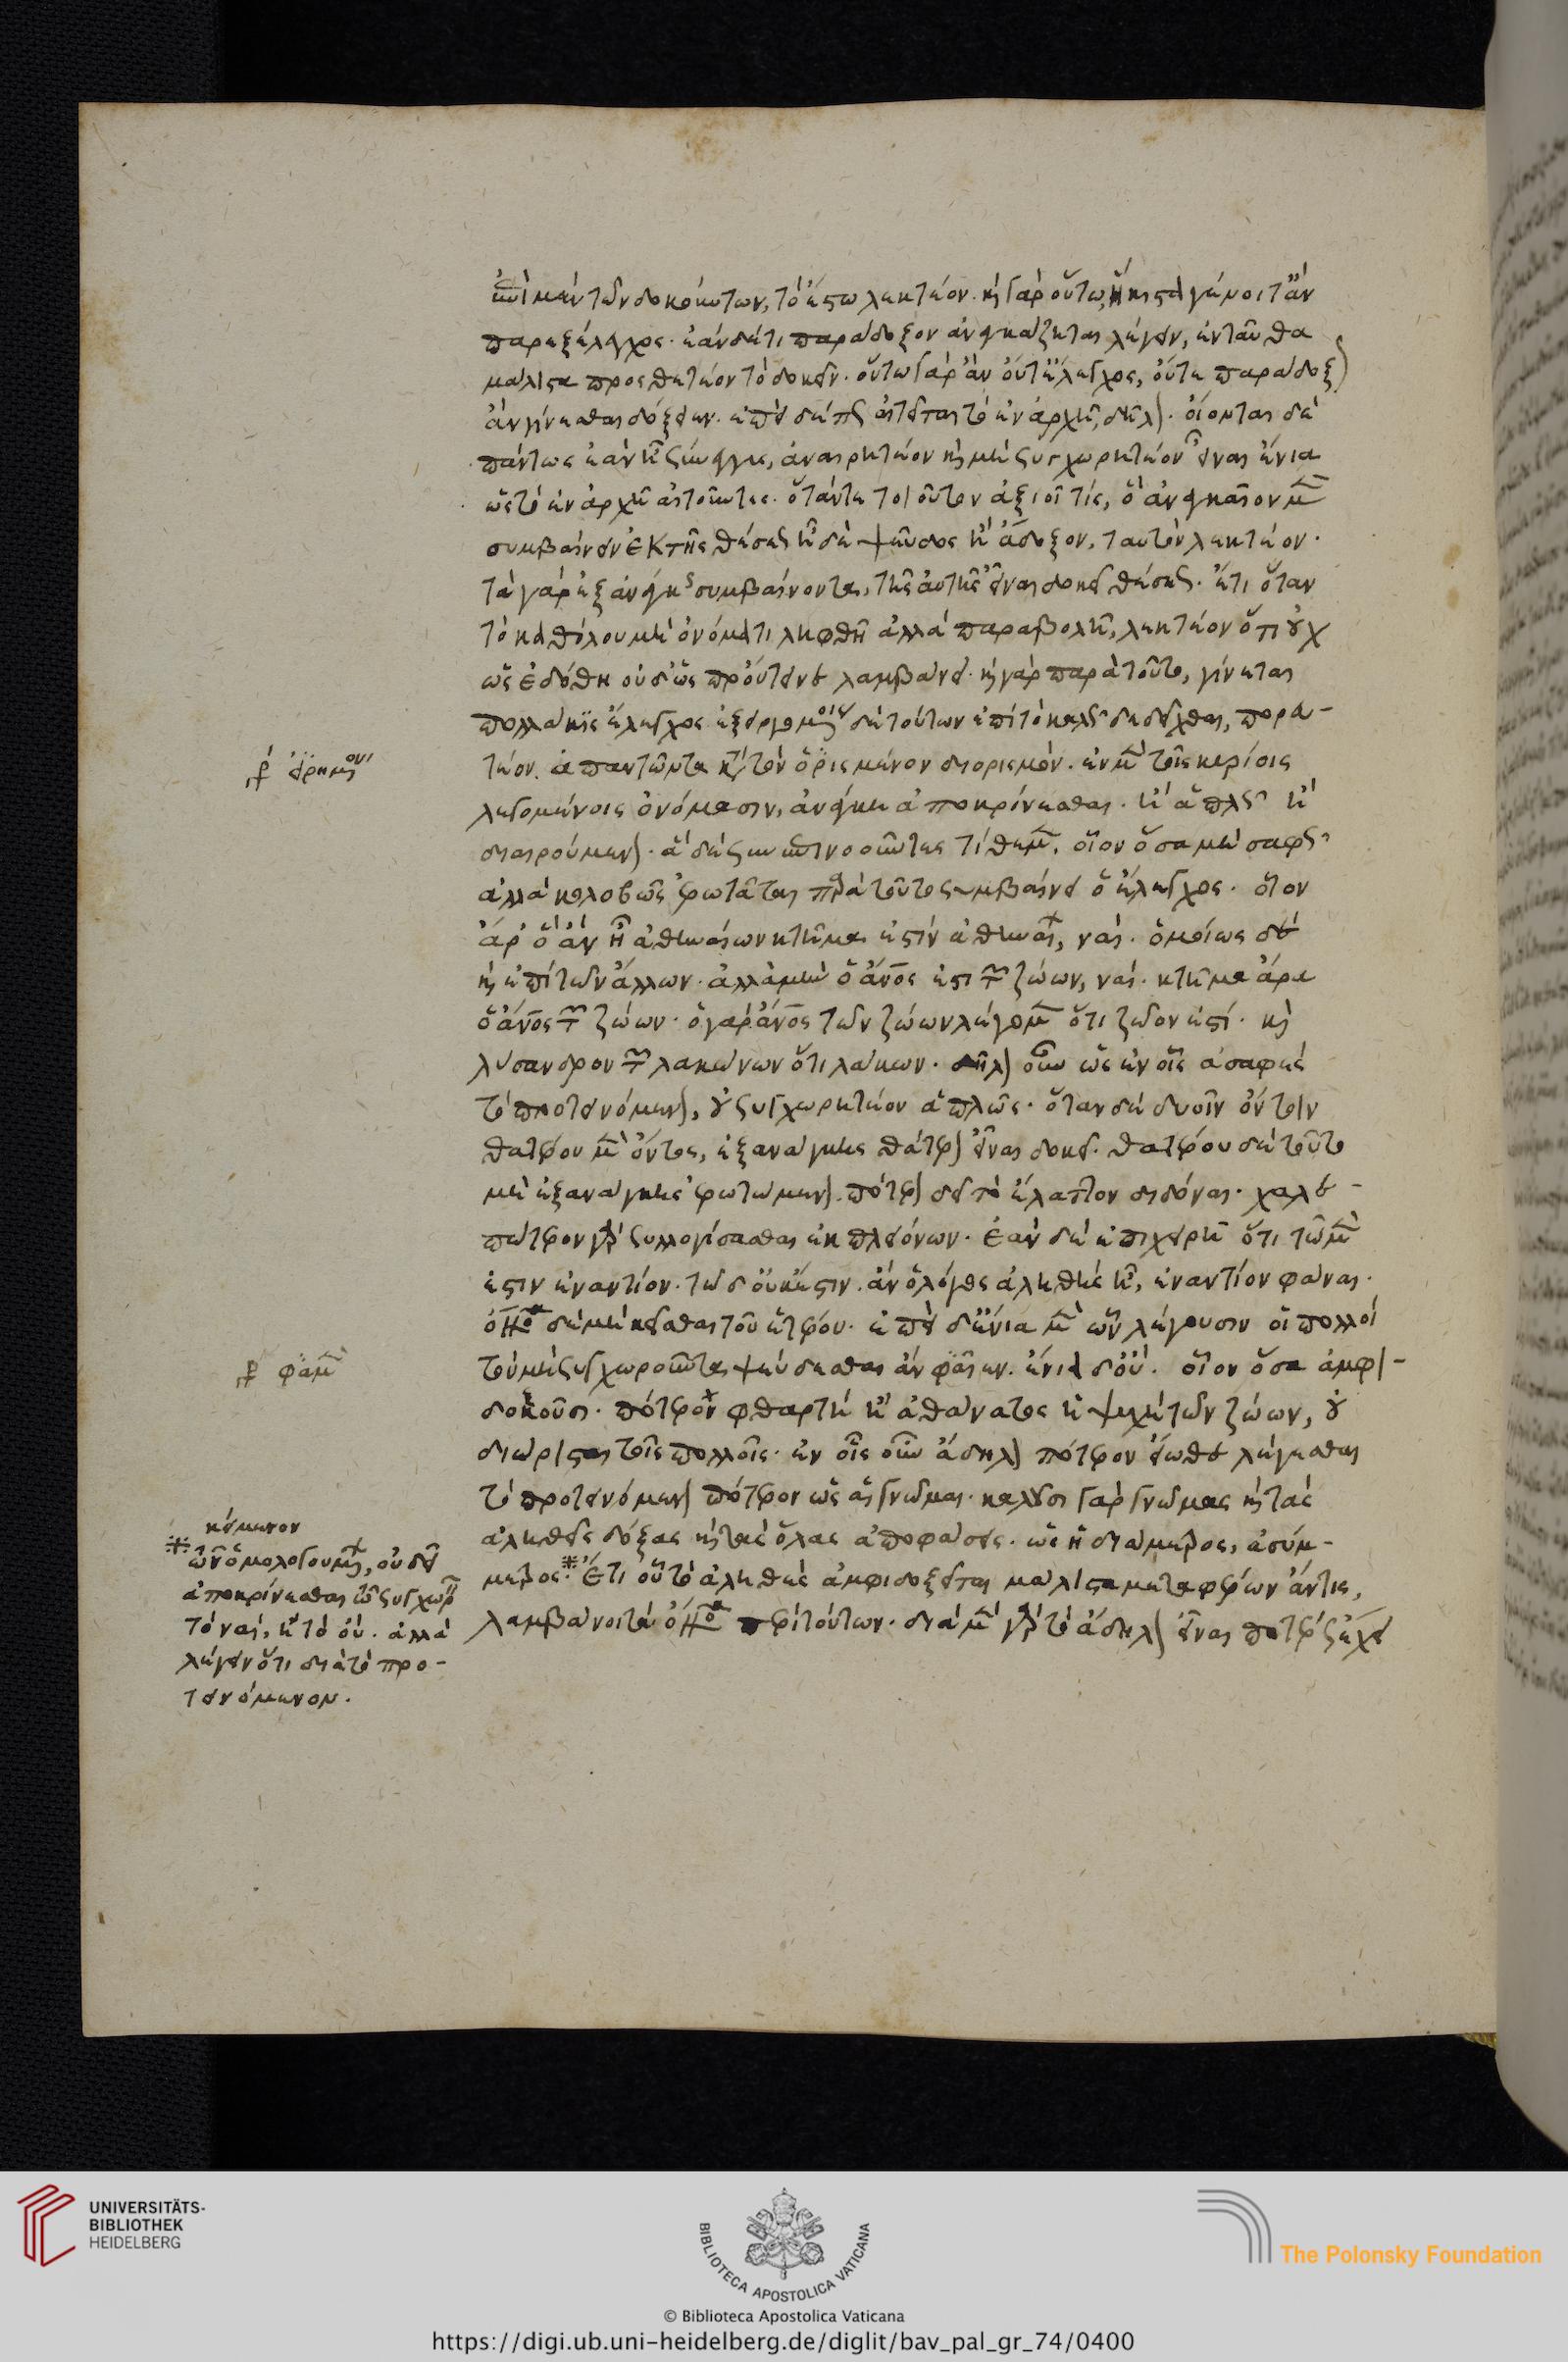 ἐπὶ μὲν τῶν δοκούντων, τὸ ἔστω λεκτέον. καὶ γὰρ οὕτως ἥκιστα γένοιτ' ἂν
παρεξέλεγχος. ἐὰν δέ τι παράδοξον ἀναγκάζηται λέγειν, ἐνταῦθα
μάλιστα προσθετέον τὸ δοκεῖν. οὕτω γὰρ ἂν οὔτ' ἔλεγχος, οὔτε παράδοξον
ἂν γίνεσθαι δόξειεν. ἐπεὶ δὲ πῶς αἰτεῖται τὸ ἐν ἀρχῇ, δῆλον. οἴονται δὲ
πάντως ἐὰν ᾖ σύνεγγυς, ἀναιρετέον καὶ μὴ συγχωρητέον εἶναι ἔνια
ὡς τὸ ἐν ἀρχῇ αἰτοῦντος. ὅταν τε τοιοῦτον ἀξιοῖ τίς, ὃ ἀναγκαῖον μὲν
συμβαίνειν ἐκ τῆς θέσεως ᾖ δὲ ψεῦδος ἢ ἄδοξον, ταυτὸν λεκτέον.
τὰ γὰρ ἐξ ἀνάγκης συμβαίνοντα, τῆς αὐτῆς εἶναι δοκεῖ θέσεως. ἔτι ὅταν
τὸ καθόλου μὴ ὀνόματι ληφθῇ ἀλλὰ παραβολῇ, λεκτέον ὅτι οὐχ
ὡς ἐδόθη οὐδ' ὡς προὔτεινε λαμβάνει. καὶ γὰρ παρὰ τοῦτο, γίνεται
πολλάκις ἔλεγχος ἐξειργομένοις δὲ τούτων ἐπὶ τὸ καλῶς δεδεῖχθαι, πορευ-
τέον. ἀπαντῶντα κατὰ τὸν ὁρισμένον διορισμόν. ἐν μὲν τοῖς κυρίοις
λεγομένοις ὀνόμασιν, ἀνάγκη ἀποκρίνεσθαι. ἢ ἁπλῶς ἢ
διαιρούμενον. ἃ δὲ συνυπονοοῦντες τίθεμεν. οἷον ὅσα μὴ σαφῶς
ἀλλὰ κολοβῶς ἐρωτᾶται παρὰ τοῦτο συμβαίνει ὁ ἔλεγχος. οἷον
ἆρ' ὃ ἂν ᾖ ἀθηναίων κτῆμα ἐστὶν ἀθηναίων, ναί. ὁμοίως δὲ
καὶ ἐπὶ τῶν ἄλλων. ἀλλὰ μὴν ὁ ἄνος ἐστὶ τῶν ζώων, ναί. κτῆμα ἄρα
ὁ ἄνος τῶν ζώων. ὁ γὰρ ἄνος τῶν ζώων λέγομεν ὅτι ζῶον ἐστί. καὶ
λύσανδρον τῶν λακώνων ὅτι λάκων. δῆλον οὖν ὡς ἐν οἷς ἀσαφὲς
τὸ προτεινόμενον, οὐ συγχωρητέον ἁπλῶς. ὅταν δὲ δυοῖν ὄντοιν
θατέρου μὲν ὄντος, ἐξανάγκης θάτερον εἶναι δοκεῖ. θατέρου δὲ τοῦτο
μὴ ἐξανάγκης ἐρωτώμενον. πότερον δεῖ τὸ ἔλαττον διδόναι. χαλε-
πώτερον γὰρ συλλογίσασθαι ἐκ πλειόνων. ἐὰν δὲ ἐπιχειρῇ ὅτι τῷ μὲν
ἐστιν ἐναντίον. τῷ δ' οὐκ ἔστιν. ἂν ὁ λόγος ἀληθὴς ᾖ, ἐναντίον φάναι.
ὄνομα δὲ μὴ κεῖσθαι τοῦ ἑτέρου. ἐπεὶ δ' ἔνια μὲν ὧν λέγουσιν οἱ πολλοὶ
τὸν μὴ συγχωροῦντα ψεύδεσθαι ἂν φαῖεν. ἔνια δ' οὔ. οἷον ὅσα ἀμφι-
δοξοῦσι. πότερον φθαρτὴ ἢ ἀθάνατος ἡ ψυχὴ τῶν ζώων, οὐ
διώρισται τοῖς πολλοῖς. ἐν οἷς οὖν ἄδηλον πότερον εἴωθε λέγεσθαι
τὸ προτεινόμενον πότερον ὡς αἱ γνῶμαι. καλοῦσι γὰρ γνώμας καὶ τὰς
ἀληθεῖς δόξας καὶ τὰς ὅλας ἀποφάσεις. ὡς ἡ διάμετρος, ἀσύμ-
μετρος. ※ ἔτι οὗ τὸ ἀληθὲς ἀμφιδοξεῖται μάλιστα μεταφέρων ἄν τις,
λαμβάνοι τὰ ὀνόματα περὶ τούτων. διὰ μὲν γὰρ τὸ ἄδηλον εἶναι ποτέρως ἔχει
γρ εἰρημένοις
γρ φαμὲν
※ κείμενον
ὧν ὁμολογουμένων, οὐ δεῖ
ἀποκρίνεσθαι τῷ συγχωρεῖν
τὸ ναί, ἢ τὸ οὔ. ἀλλὰ
λέγειν ὅτι διὰ τὸ προ-
τεινόμενον.
UNIVERSITÄTS-
BIBLIOTHEK
HEIDELBERG
BIBLIOTECA APOSTOLICA VATICANA
The Polonsky Foundation
© Biblioteca Apostolica Vaticana
https://digi.ub.uni-heidelberg.de/diglit/bav_pal_gr_74/0400